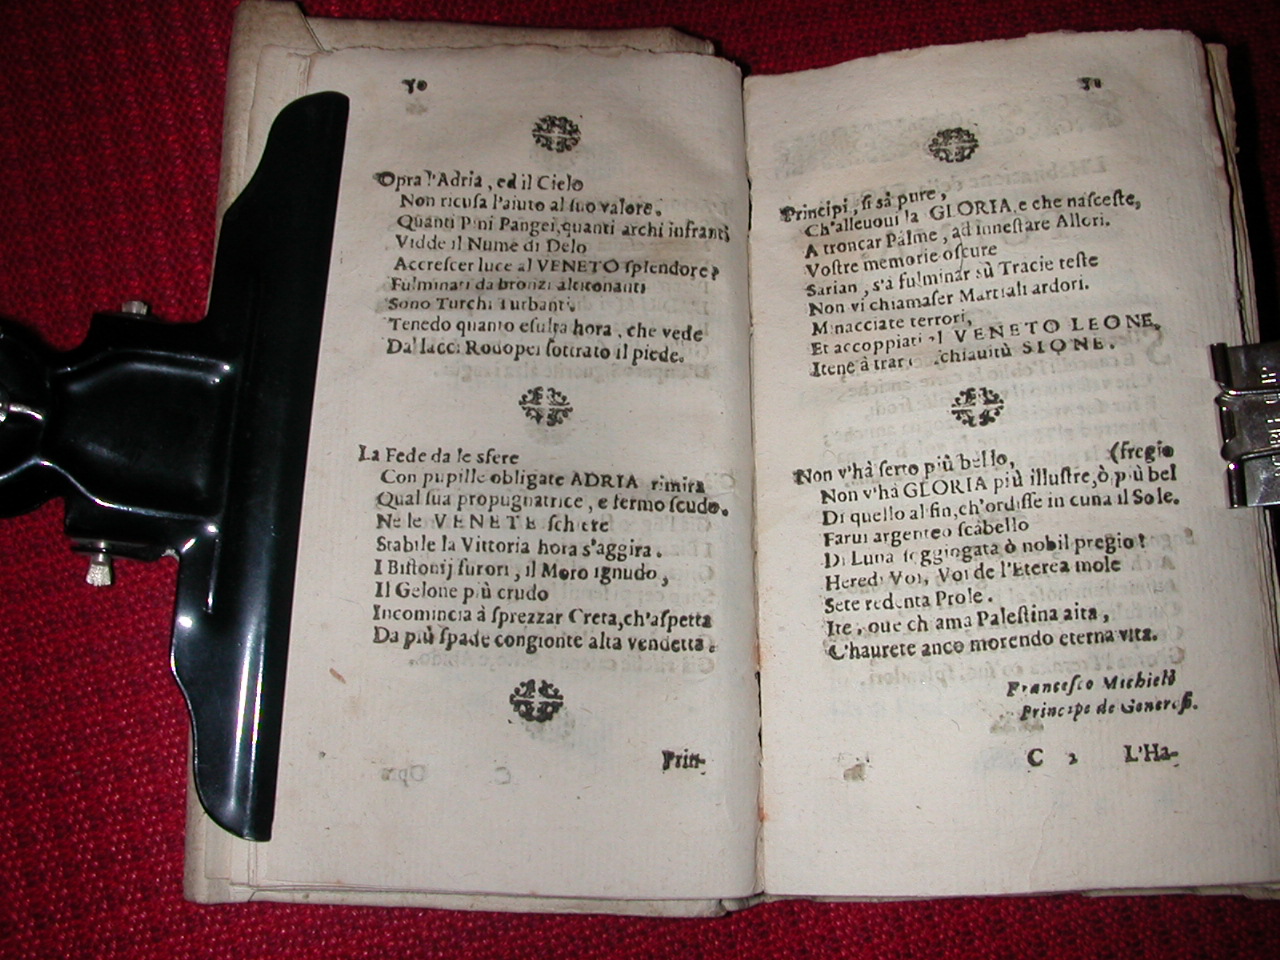 Opra l'Adria, ed il Cielo
Non ricusa l'aiuto al suo valore.
Quanti Pini Pangei, quanti archi infranti
Vidde il Nume di Delo
Accrescer luce al VENETO splendore?
Fulminati da bronzi altitonanti
Sono Turchi Turbanti.
Tenedo quanto esulta hora, che vede
Da' lacci Rodopei sottrato il piede.
La Fede da le sfere
Con pupille obligate ADRIA rimira
Qual sua propugnatrice, e fermo scudo.
Ne le VENETE schiere
Stabile la Vittoria hora s'aggira.
I Bistonij furori, il Moro ignudo,
Il Gelone più crudo
Incomincia à sprezzar Creta, ch'aspetta
Da più spade congionte alta vendetta.
Prin-
Principi, si sà pure,
Ch'alleuoui la GLORIA, e che nasceste,
A troncar Palme, ad innestare Allori.
Vostre memorie oscure
Sarian, s'à fulminar sù Tracie teste
Non vi chiamasser Martiali ardori.
Minacciate terrori,
Et accoppiati al VENETO LEONE,
Itene à trar chiauitù SIONE.
Non v'hà serto più bello, (fregio
Non v'hà GLORIA più illustre, ò più bel
Di quello al fin, ch'ordisse in cuna il Sole.
Farui argenteo scabello
Di Luna soggiogata ò nobil pregio!
Heredi Voi, Voi de l'Eterea mole
Sete redenta Prole.
Ite, oue chiama Palestina aita,
C'haurete anco morendo eterna vita.
Francesco Michiele
Principe de Generosi.
C 2 L'Ha-